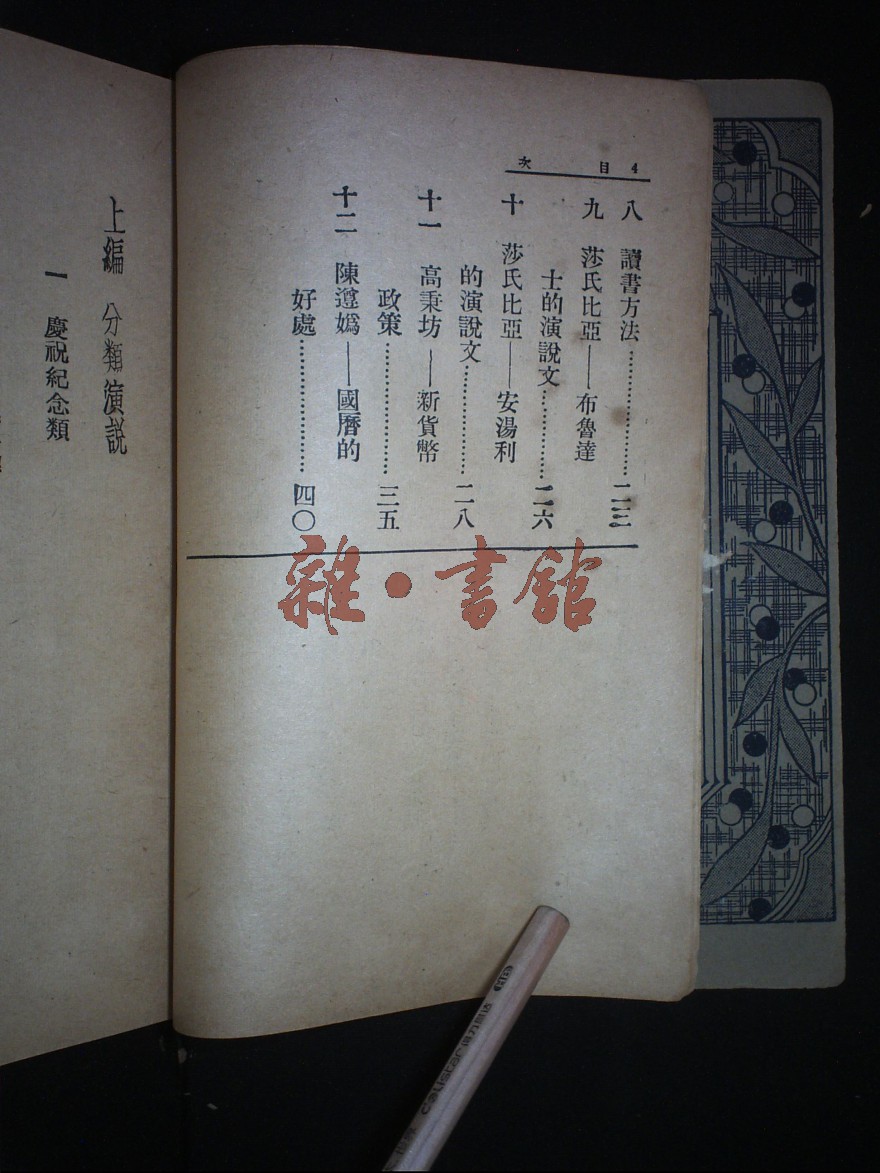 4 目 次
八 讀書方法……………………二三
九 莎氏比亞——布魯達
士的演說文………………二六
十 莎氏比亞——安湯利
的演說文…………………二八
十一 高秉坊——新貨幣
政策………………………三五
十二 陳遵嬀——國曆的
好處………………………四〇
上編 分類演説
一 慶祝紀念類
雜·書館